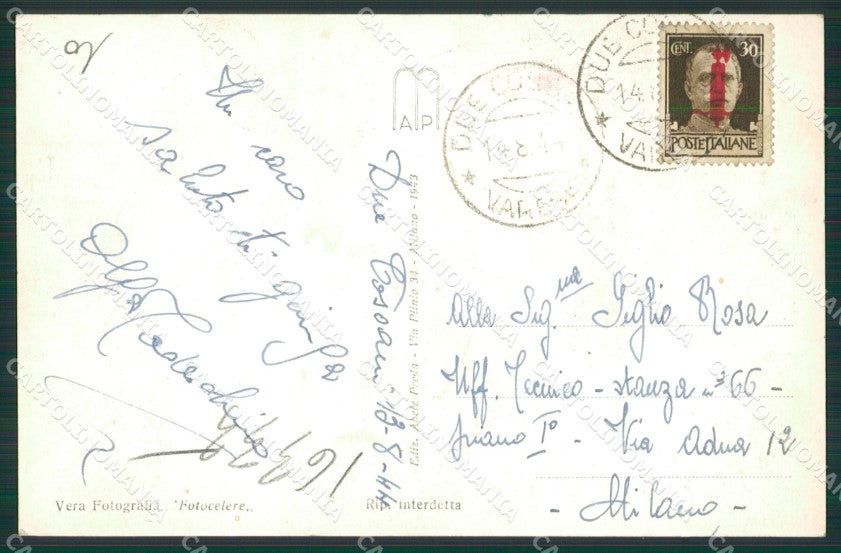 Un caro
saluto ti giunga
Olga Tedeschi
AP
Due Cossani 13-8-44
Ediz. Abele Preda - Via Plinio 34 - Milano - 1943
Vera Fotografia "Fotocelere"
Rip. interdetta
DUE CO
14.8.44
VARESE
DUE CO
14.
VARE
CENT. 30
POSTE ITALIANE
Alla Sig.na Giglio Rosa
Uff. Tecnico - stanza n° 66 -
piano I° - Via Adua 12
- Milano -
CARTOLINOMANIA